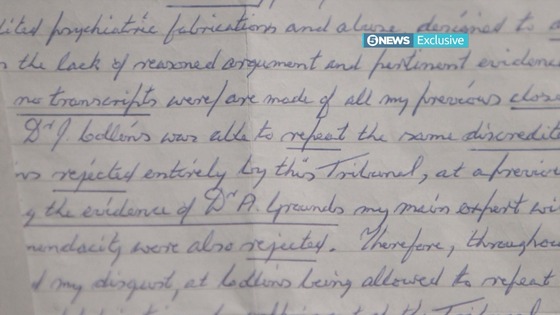 5 NEWS Exclusive
dited psychiatric fabrications and abuse designed to
the lack of reasoned argument and pertinent evidence
no transcripts were/are made of all my previous close
Dr J. Collins was able to repeat the same discredit
ns rejected entirely by this Tribunal, at a previou
y the evidence of Dr A. Grounds my main expert wi
mendacity were also rejected. Therefore, throughou
d my disgust, at Collins being allowed to repeat